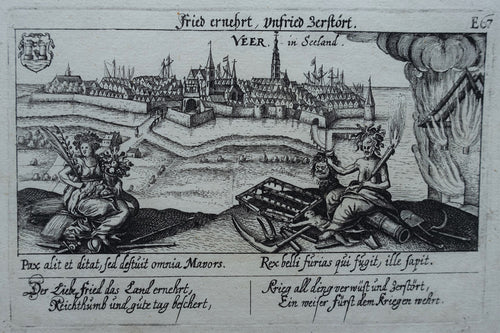 Fried ernehrt, Vnfried Zerstört.
E67
VEER. in Seeland.
Pax alit et ditat, sed destuit omnia Mavors.
Rex belli furias qui fugit, ille sapit.
Der Liebe fried das Land ernehrt,
Reichthumb und gute tag beschert,
Krieg all deng verwüst und Zerstört,
Ein weiser fürst dem Kriegen wehrt.